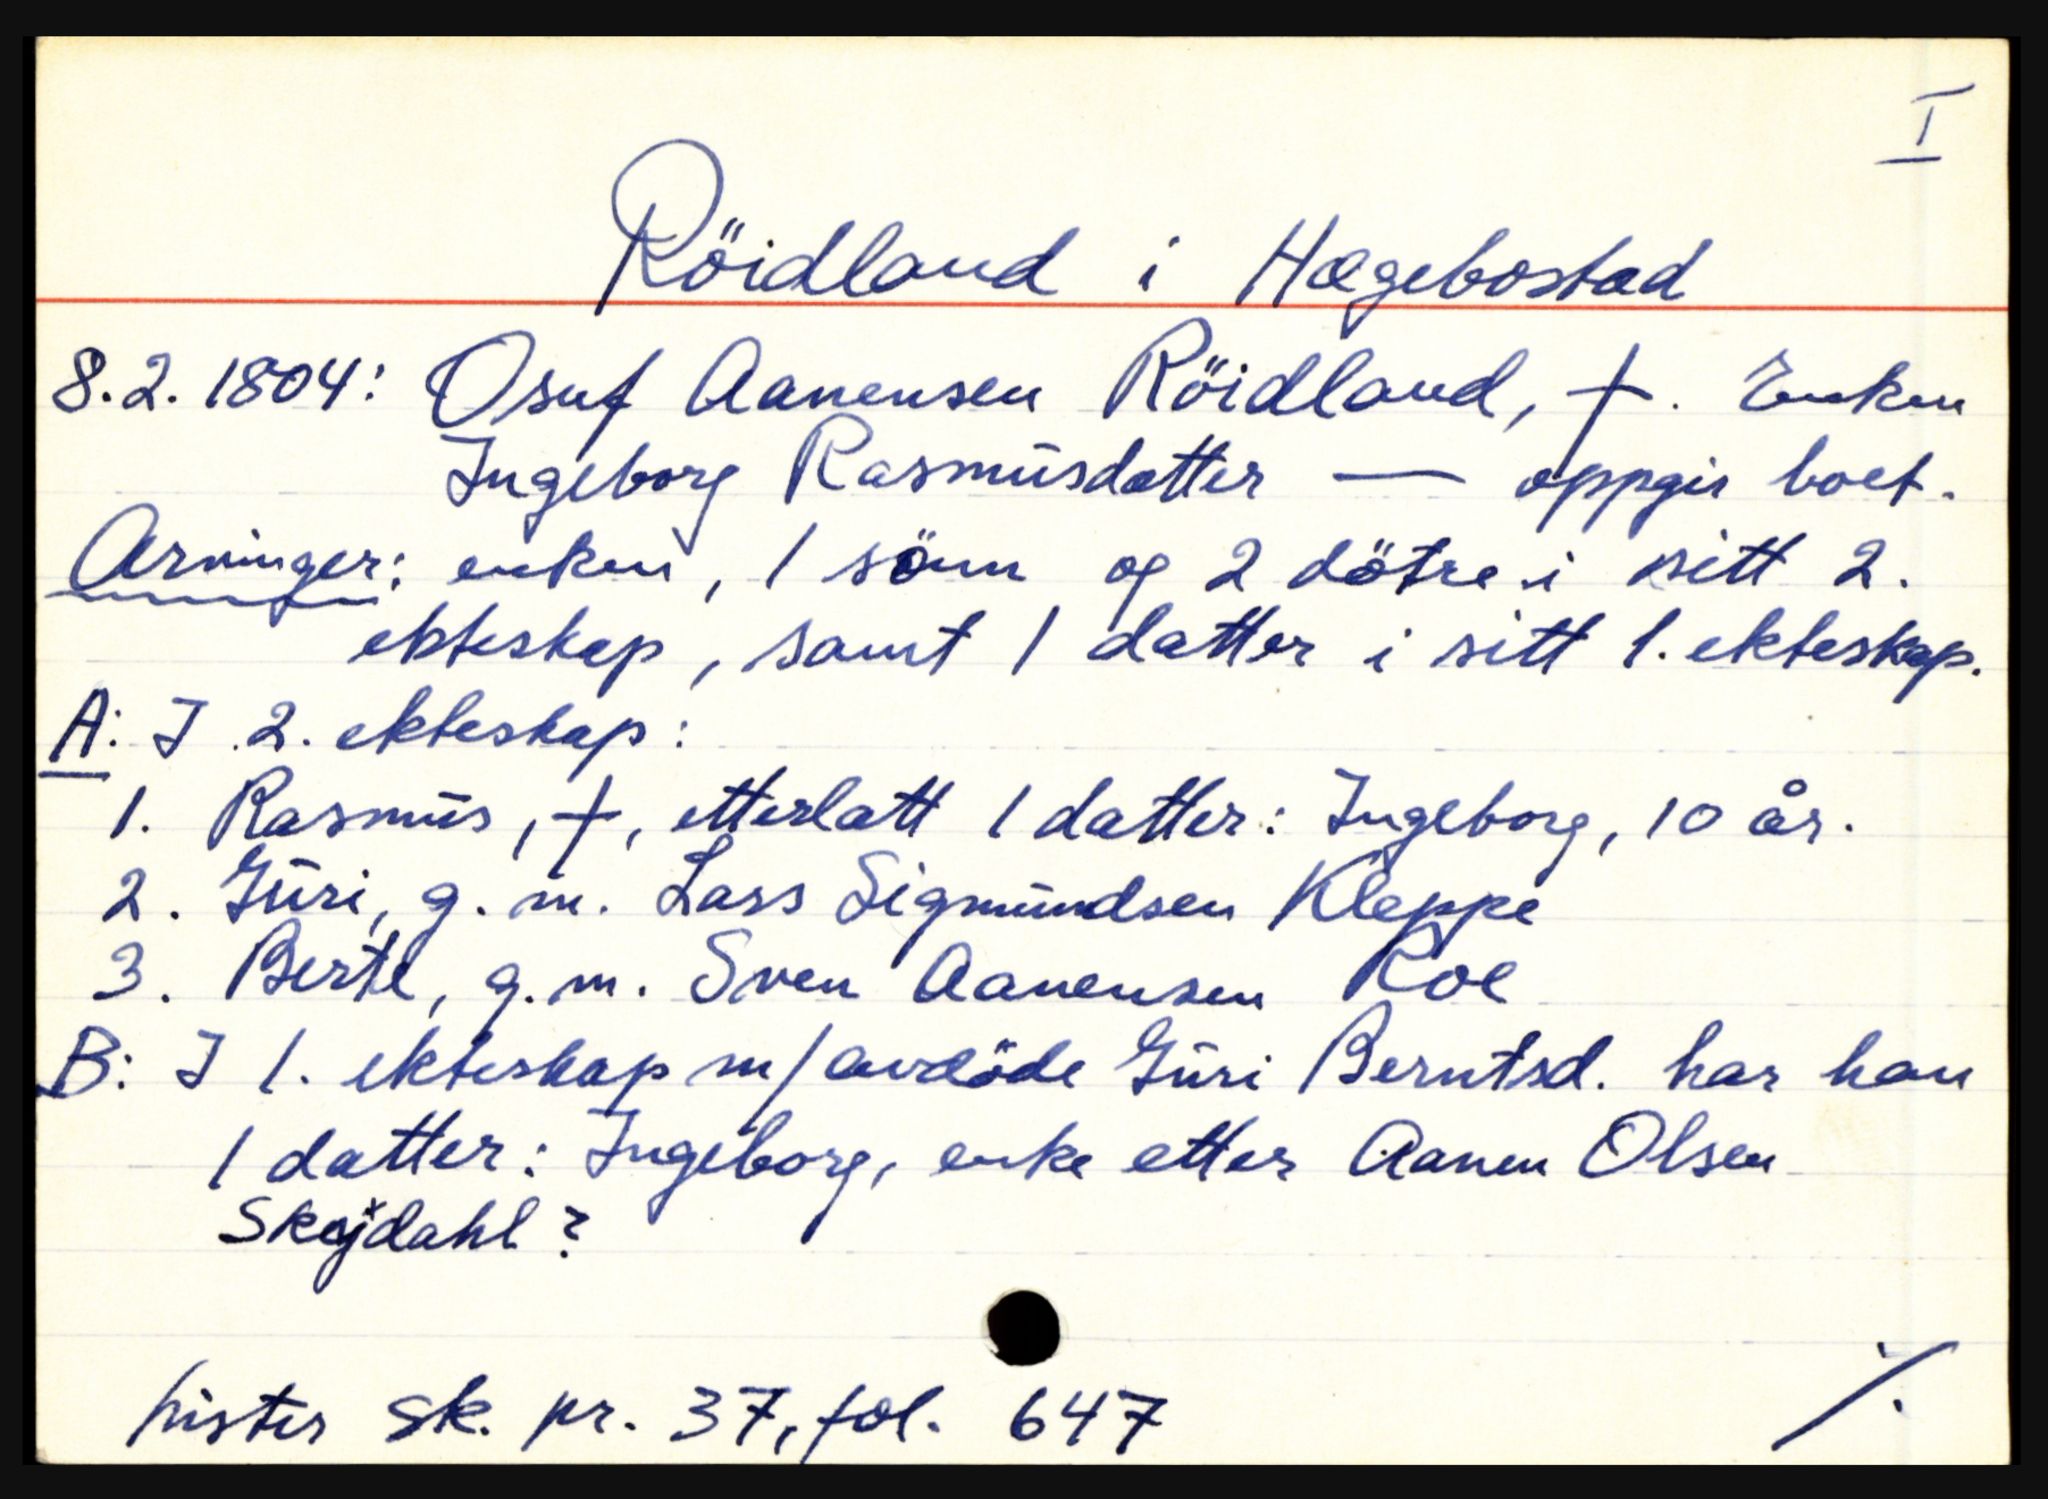 I
Röidland i Hægebostad
8.2.1804: Osuf Aanensen Röidland, †. Enken
Ingeborg Rasmusdatter — oppgir boet.
Arvinger: enken, 1 sönn og 2 dötre i sitt 2.
ekteskap, samt 1 datter i sitt 1. ekteskap.
A: I 2. ekteskap:
1. Rasmus, †, etterlatt 1 datter: Ingeborg, 10 år.
2. Guri, g. m. Lars Sigmundsen Kleppe
3. Berte, g. m. Sven Aanensen Roe
B: I 1. ekteskap m/avdöde Guri Berntsd. har han
1 datter: Ingeborg, enke etter Aanen Olsen
Skejdahl?
Lister sk. pr. 37, fol. 647
./.